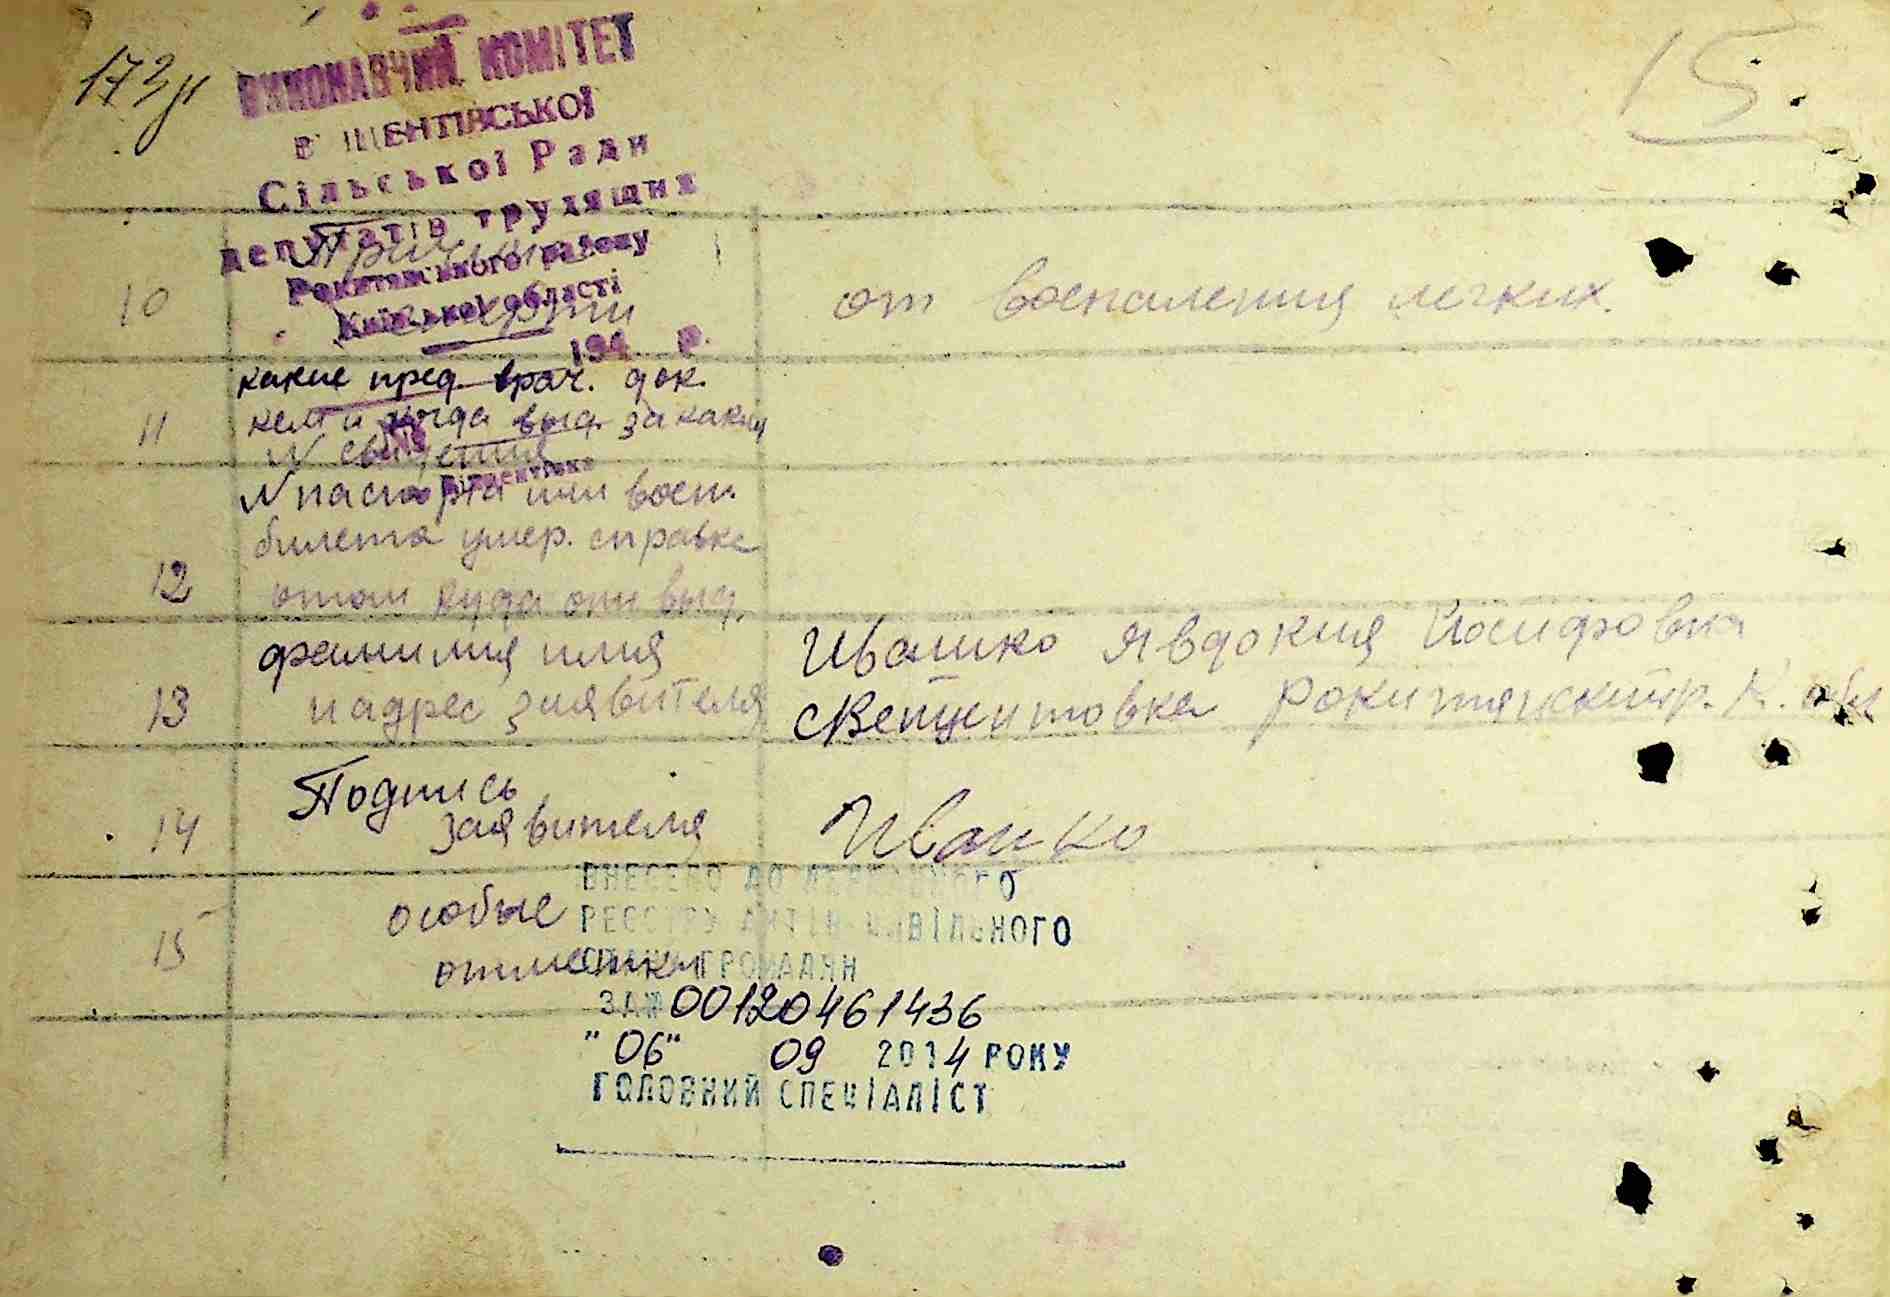 173д
15
ВИКОНАВЧИЙ КОМІТЕТ
В ЩЕНТІВСЬКОЇ
Сільської Ради
депутатів трудящих
Рокитянського району
Київської області
194 р.
10 Причина смерти от воспаления легких.
11 какие пред. врач. док.
кем и когда выд. за каким
N свидетия
12 N паспорта или воен.
билета умер. справке
отом куда они выд.
13 фамилия имя Ивашко Явдокия Иосифовна
и адрес заявителя с Венцентовка Рокитянский р. К. обл
14 Подпись
заявителя Ивашко
15 особые
отметки
ВНЕСЕНО ДО ДЕРЖАВНОГО
РЕЄСТРУ АКТІВ ЦИВІЛЬНОГО
СТАНУ ГРОМАДЯН
ЗА № 00120461436
"06" 09 2014 РОКУ
ГОЛОВНИЙ СПЕЦІАЛІСТ